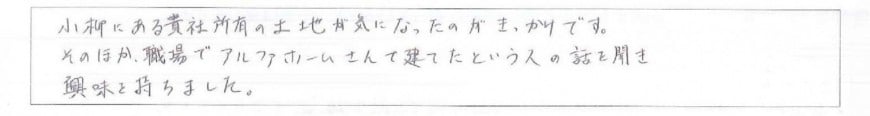 小柳にある貴社所有の土地が気になったのがきっかけです。
そのほか、職場でアルファホームさんで建てたという人の話を聞き
興味を持ちました。